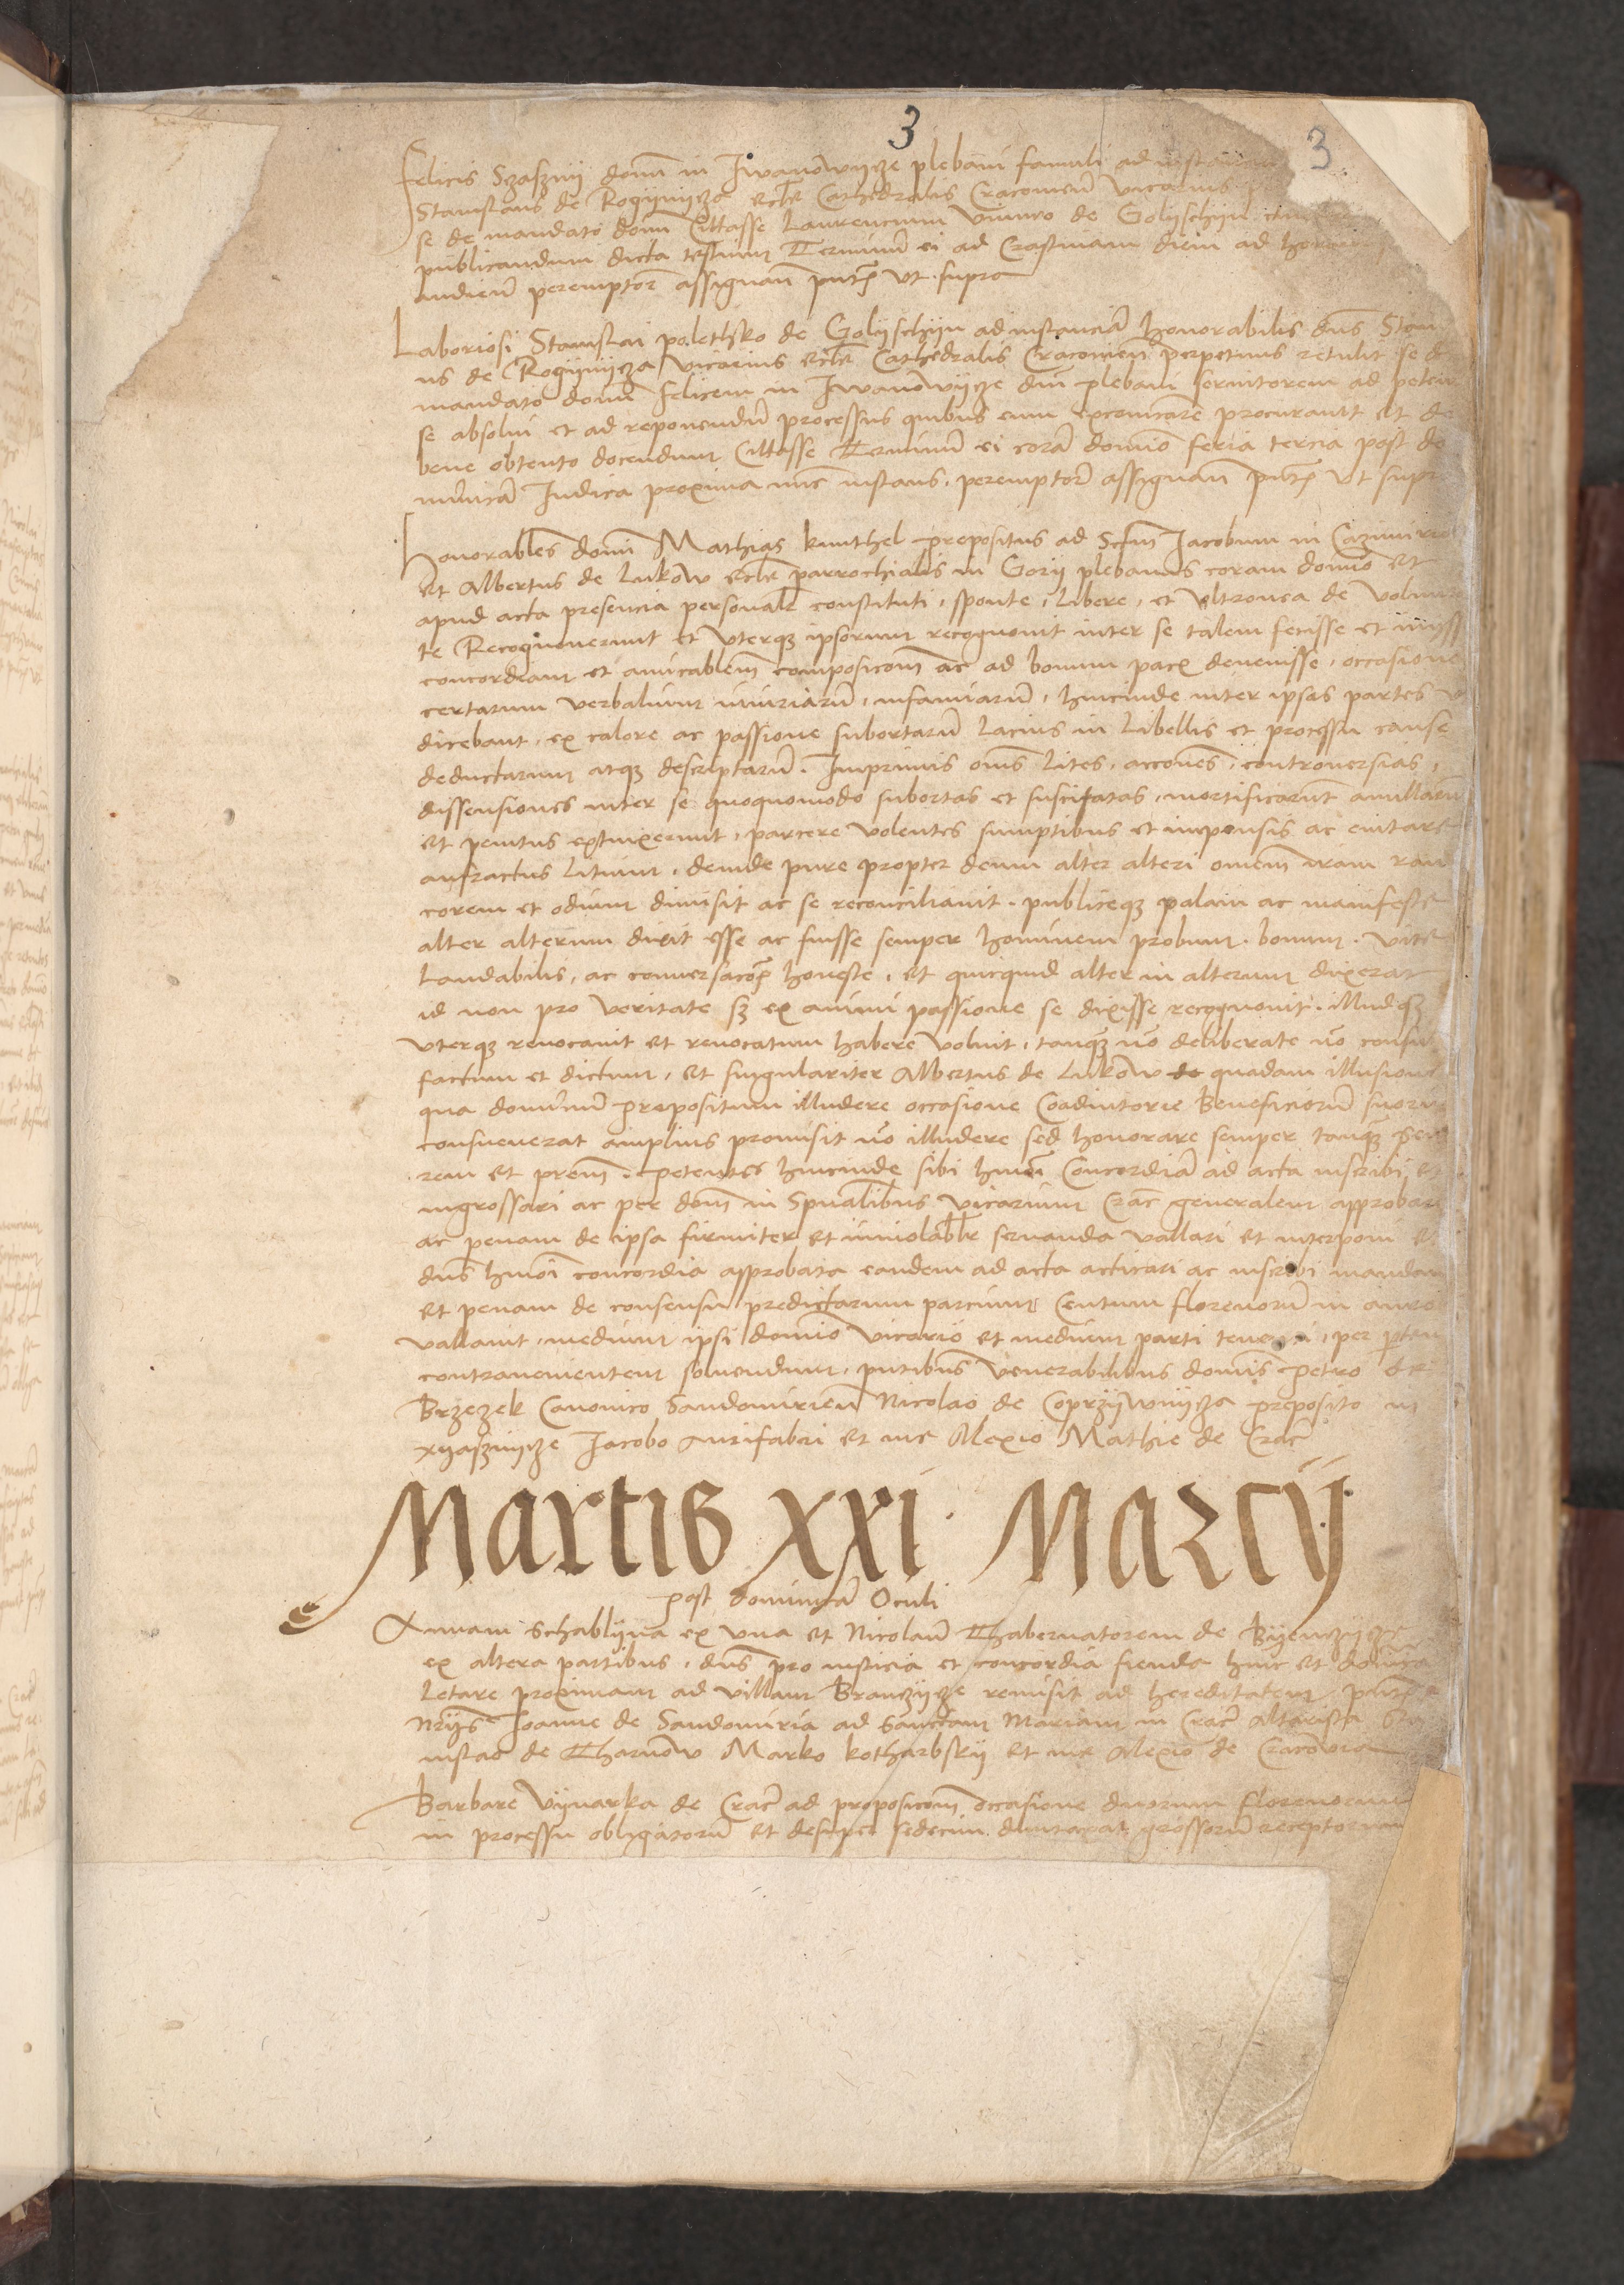 3
3
Felicis Szasznij domi in Jwanowijcze plebani famuli ad instan
Stanislaus de Rogijnijcza eccle Cathedralis Cracovien vicarius
se de mandato domi Cittasse Laurencium de Golijschijn
publicandum dicta testium Terminum ei ad Crastinam diem ad
audien peremptor assignan pntx vt supra
Laboriosi Stanislai palethko de Golijschijn ad instanciam honorabilis dns Stan
us de Rogijnijcza vicarius eccle Cathedralis Cracovien perpetuus retulit se de
mandato domi felicem in Jwanowijcze dni plebani servitorem ad peten
se absolui et ad reponendum processus quibus eum excomcare procurauit et de
bene obtento docendum Cittasse Terminum ei coram domino feria tercia post do
minicam Judica proxima nuc instans peremptor assignan pntx vt supr
honorabiles domi Mathias kunthel prepositus ad Sctum Jacobum in Cazimiria
et Albertus de Lukow eccle parrochialis in Gorij plebanus coram domino et
apud acta presencia personalr constituti, sponte, libere, et vltronea de volunta
te Recognouerunt et vterqz ipsorum recognouit inter se talem fecisse et inijss
concordiam et amicablem composicoem ac ad bonum pacis deuenisse, occasione
certarum verbalium iniuriarum, infamiarum, hincinde inter ipsas partes
dicebant, ex calore ac passione subortarum lacius in libellis et processu cause
deductarum atqz descriptarum. Imprimis oms lites, accones, controuersias,
dissensiones inter se quoquomodo subortas et suscitatas, mortificarunt anullarunt
et penitus extinxerunt, parcere volentes sumptibus et impensis ac euitare
anfractus litium, deinde pure propter deum alter alteri omnem iram ran
corem et odium dimisit ac se reconciliauit. publiceqz palam ac manifeste
alter alterum dixit esse ac fuisse semper hominem probum. bonum. vite
laudabilis, ac conuersacois honeste, et quicquid alter in alterum dixerat
id non pro veritate sz ex animi passione se dixisse recognouit. illudqz
vterqz reuocauit et reuocatum habere voluit, tanqz no deliberate no consul
factum et dictum, et singulariter Albertus de Lukow de quadam illusione
qua dominum prepositum illudere occasione Coadiutorie beneficiorum suorum
consueuerat amplius promisit no illudere sed honorare semper tanqz
rem et prem. petentes hincinde sibi hmoi Concordiam ad acta inscribi et
ingrossari ac per dom in Spualibus vicarium Crac generalem approbari
ac penam de ipsa firmiter et inuiolablr seruanda vallari et interponi et
dns hmoi concordia approbata eandem ad acta acticari ac inscribi mandau
et penam de consensu predictarum parcium Centum florenorum in auro
vallauit, medium ipsi domino vicario et medium parti tenenti, per pten
contrauenientem soluendum, pntibus venerabilibus domis Petro de
Brzezek Canonico Sandomirien Nicolao de Coprzijwnijcza preposito in
xijasznijcze Jacobo aurifabri et me Alexio Mathie de Crac
Martis XXI Marcij
post dominicam Oculi
Annam Schablijna ex vna et Nicolaum Thabernatorem de Bijenczijcze
ex altera partibus, dns pro iusticia et concordia fienda hinc et dominica
Letare proximam ad villam Branczijcze remisit ad hereditatem pntx
Nrijs Joanne de Sandomiria ad Sanctam Mariam in Crac altarista Sta
nislao de Tharnow Marko kotharbskij et me Alexio de Cracowia
Barbare vijnarka de Crac ad proposicoem occasione duorum florenorum
in processu obligatorum et desuper sedecim duntaxat grossorum receptorum